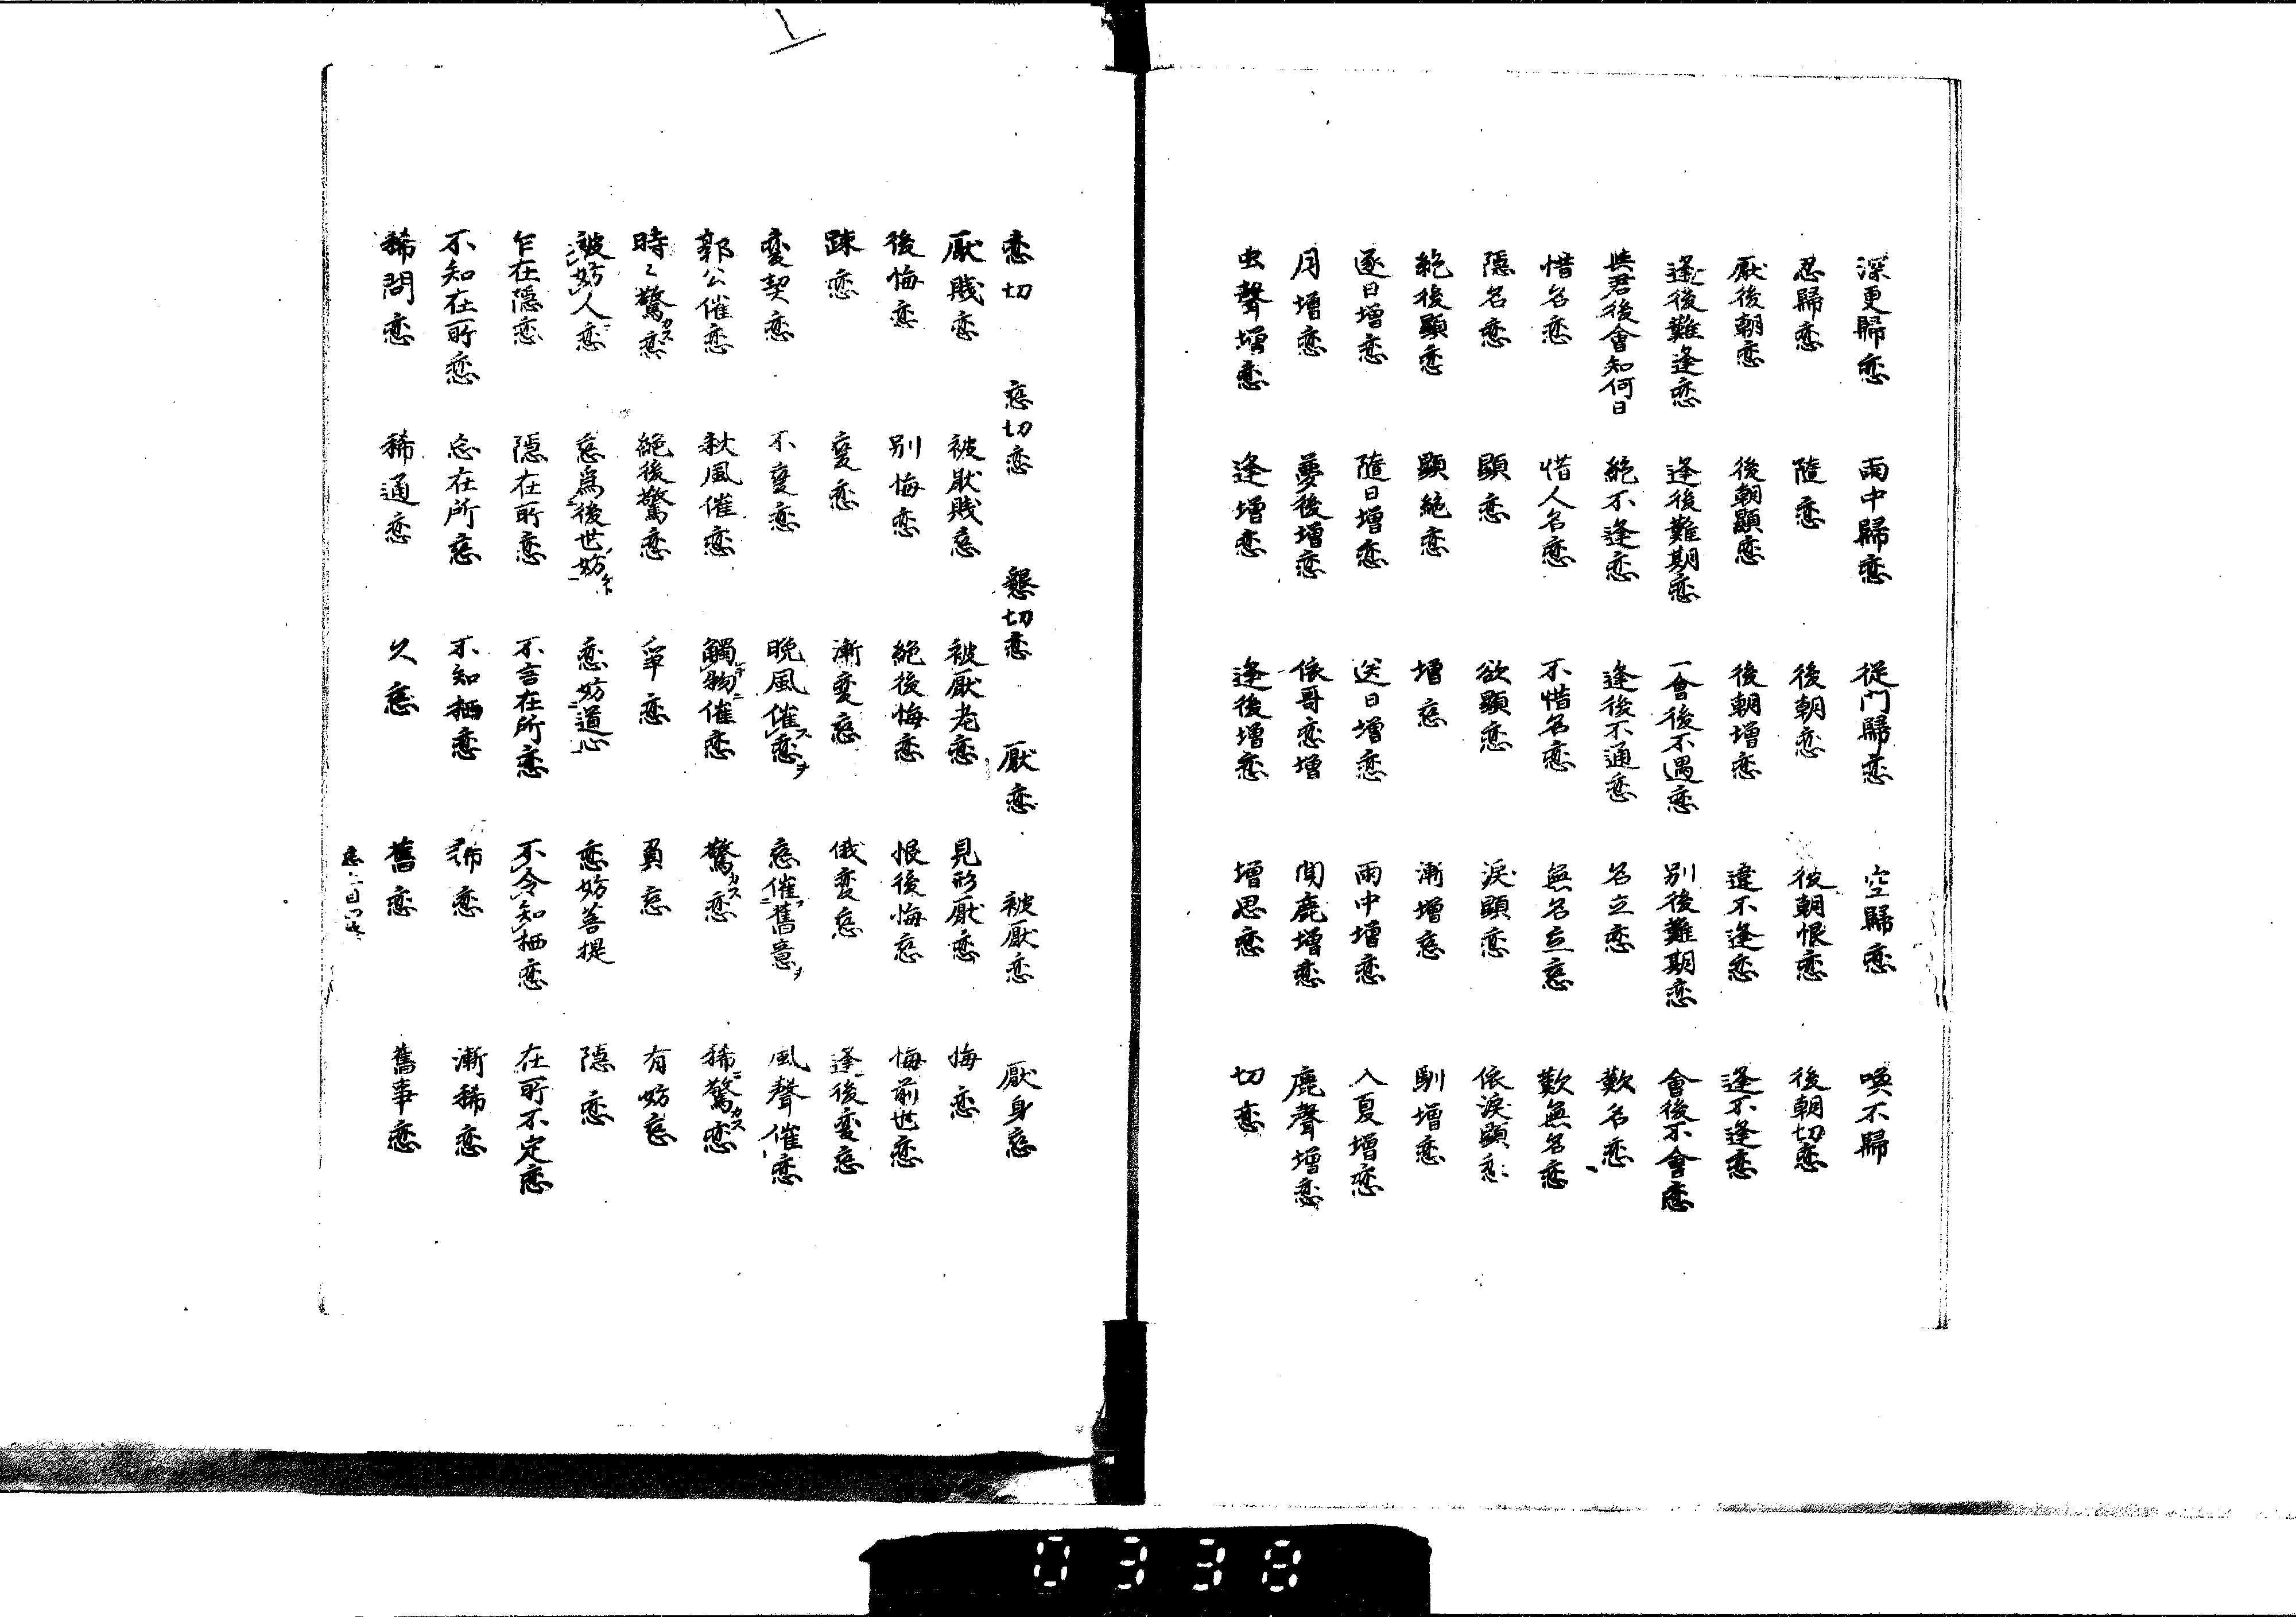 深更歸恋　雨中歸恋　從門歸恋　空歸恋　喚不歸
忍歸恋　隨恋　後朝恋　後朝恨恋　後朝切恋
厭後朝恋　後朝顯恋　後朝増恋　違不逢恋　逢不逢恋
逢後難逢恋　逢後難期恋　一會後不遇恋　別後難期恋　會後不會恋
與君後會知何日　絶不逢恋　逢後不通恋　名立恋　歎名恋
惜名恋　惜人名恋　不惜名恋　無名立恋　歎無名恋
隠名恋　顯恋　欲顯恋　淚顯恋　依淚顯恋
絶後顯恋　顯絶恋　増恋　漸増恋　馴増恋
逐日増恋　隨日増恋　送日増恋　雨中増恋　入夏増恋
月増恋　夢後増恋　依哥恋増　聞鹿増恋　鹿聲増恋
虫聲増恋　逢増恋　逢後増恋　増思恋　切恋
恋切　恋切恋　懇切恋　厭恋　被厭恋　厭身恋
厭賤恋　被厭賤恋　被厭老恋　見形厭恋　悔恋
後悔恋　別悔恋　絶後悔恋　恨後悔恋　悔前世恋
疎恋　変恋　漸変恋　俄変恋　逢後変恋
変契恋　不変恋　晩風催恋　恋催舊意　風聲催恋
郭公催恋　秋風催恋　觸物催恋　驚恋　稀驚恋
時〻驚恋　絶後驚恋　爭恋　負恋　有妨恋
被妨人恋　恋為後世妨　恋妨道心　恋妨菩提　隠恋
乍在隠恋　隠在所恋　不言在所恋　不令知栖恋　在所不定恋
不知在所恋　忘在所恋　不知栖恋　稀恋　漸稀恋
稀問恋　稀通恋　久恋　舊恋　舊事恋
0338